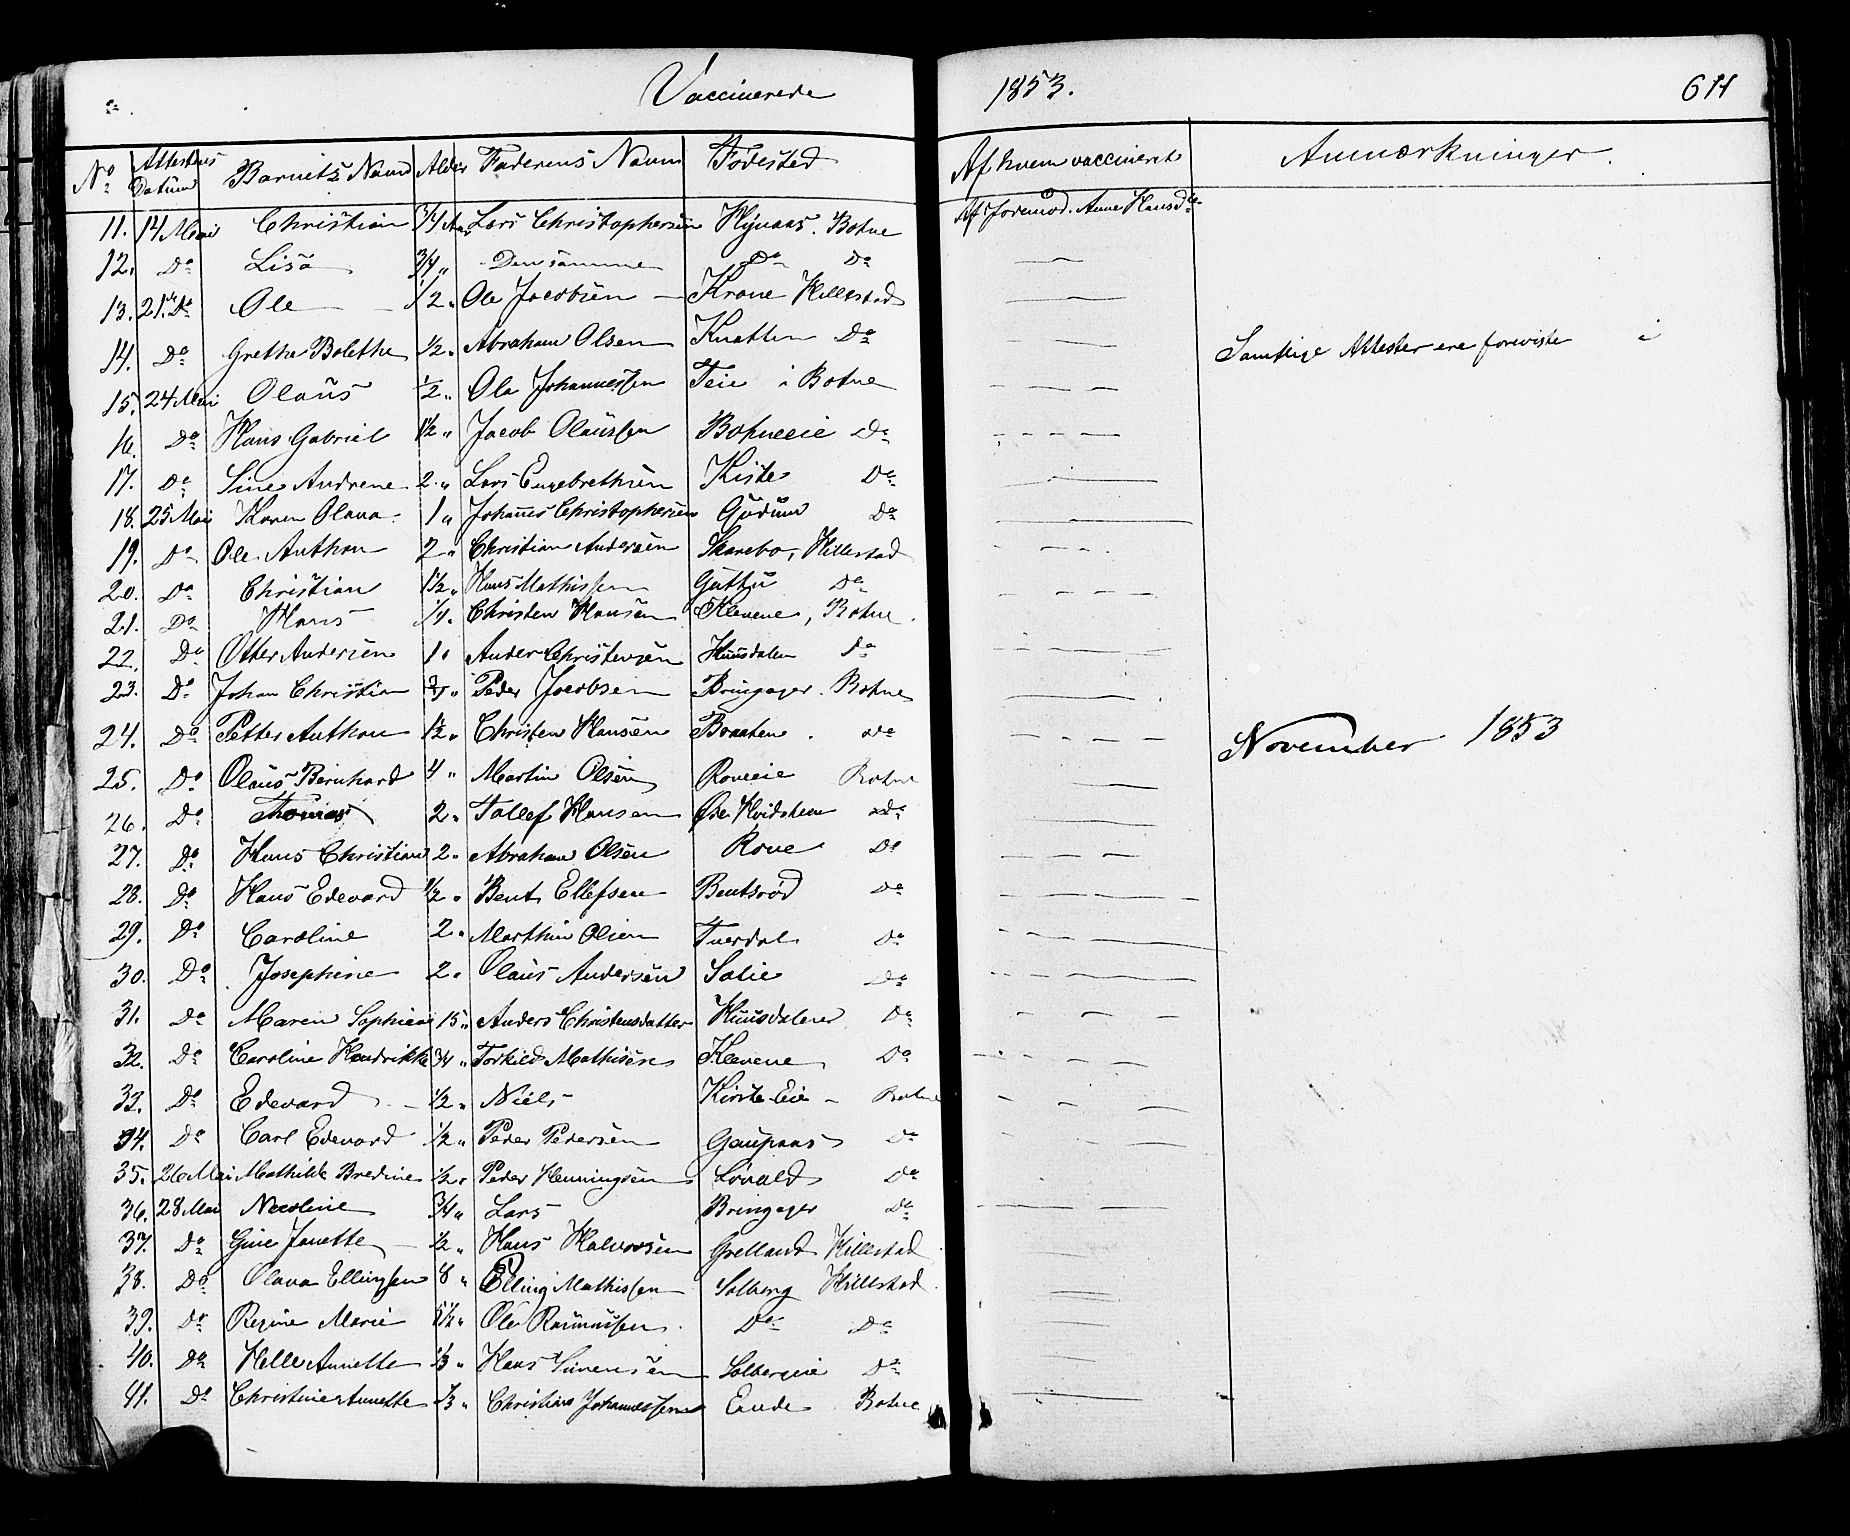 Vaccinerede 1853. 611
No Attestens Datum Barnets Navn Alder Faderens Navn Fødested Af hvem vaccineret Anmærkninger.
11. 14 Mai Christian 3/4 Aar Lars Christophersen Botne Af Jordmod. Anne Hansd.
12. Do Lisa 3/4 " Densamme Do Do
13. 21. Do Ole 1/2 " Ole Jacobsen Krone Hillestad
14. Do Grethe Bolethe 1/2 " Abraham Olsen Knatten Do Samtlige Attester ere foreviste i
15. 24 Mai Olaus 1/2 " Ole Johannessen Teie i Botne
16. Do Hans Gabriel 1 1/2 " Jacob Olaussen Botneeie Do
17. Do Sine Andrene 2 " Lars Engebrethsen Kiste Do
18. 25 Mai Karen Olava 1 " Johannes Christophersen Gudum Do
19. Do Ole Anthon 2 " Christian Andersen Skarebo, Hillestad
20. Do Christian 1 1/2 " Hans Mathissen Guttu Do
21. Do Hans 1/4 " Christen Hansen Klevene, Botne
22. Do Otter Andersen 1 " Anders Christensen Huusdalen Do
23. Do Johan Christian " Peder Jacobsen Bringager. Botne
24. Do Petter Anthon 1 1/2 " Christen Hansen Braaten. Do November 1853
25. Do Olaus Bernhard 4 " Martin Olsen Roveeie Botne
26. Do Thomas 2 " Tollef Hansen Øde Hvidsteen Do
27. Do Hans Christian 2 " Abraham Olsen Rove Do
28. Do Hans Edevard 1/2 " Bent Ellefsen Bentsrød Do
29. Do Caroline 2 " Marthin Olsen Tverdal Do
30. Do Josephine 2 " Olaus Andersen Solie Do
31. Do Maren Sophie 15 " Anders Christensdatter Huusdalene Do
32. Do Caroline Hendrikke 3/4 " Torkild Mathisen Klevene Do
33. Do Edevard 1/2 " Niels Kiste Eie Botne
34. Do Carl Edevard 1/2 " Peder Pedersen Gaupaas Do
35. 26 Mai Mathilde Bredine 1/2 " Peder Henningsen Løvald Do
36. 28 Mai Nicoline 3/4 " Lars Bringager Do
37. Do Gine Janette 1/2 " Hans Halvorsen Grelland Hillestad
38. Do Olava Ellingsen 8 " Elling Mathissen Solberg Hillestad
39. Do Regine Marie 5 1/2 " Ole Rasmussen. Do Do
40. Do Helle Annette 1/3 " Hans Simensen Solbergeie Do
41. Do Christine Annette 1/3 " Christian Johannessen Eunde Botne